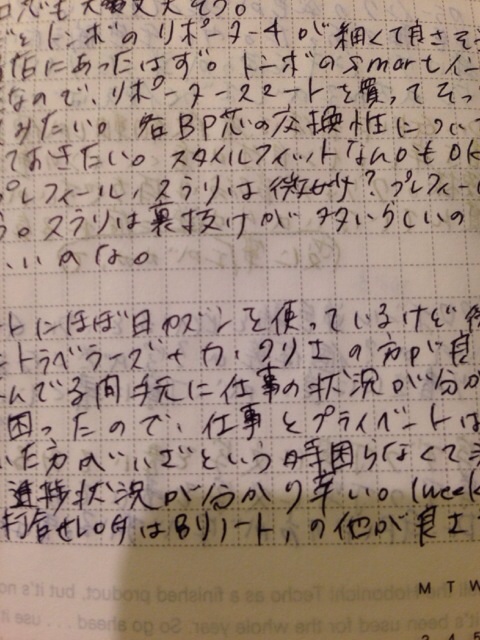 でも大丈夫そう。
とトンボのリポーター4が細くて良さそ
にあったはず。トンボのsmartイン
なので、リポータースマートを買ってそっ
みたい。各BP芯の交換性につい
ておきたい。スタイルフィットなんかもOK
プレフィール、スラリは微妙?プレフィー
う。スラリは裏抜けが多いらしいの
いいのかな。
ートにほぼ日カズンを使っているけど
トラベラーズナカ・クリエの方が良
んでる間手元に仕事の状況が分か
困ったので、仕事とプライベートは
いた方がいざという時困らなくて済
進捗状況が分かり辛い。(week
打合せログはBリノート,の他が良さ
the Hobonichi Techo as a finished product, but it's no
been used for the whole year. So go ahead . . . use it
M T W